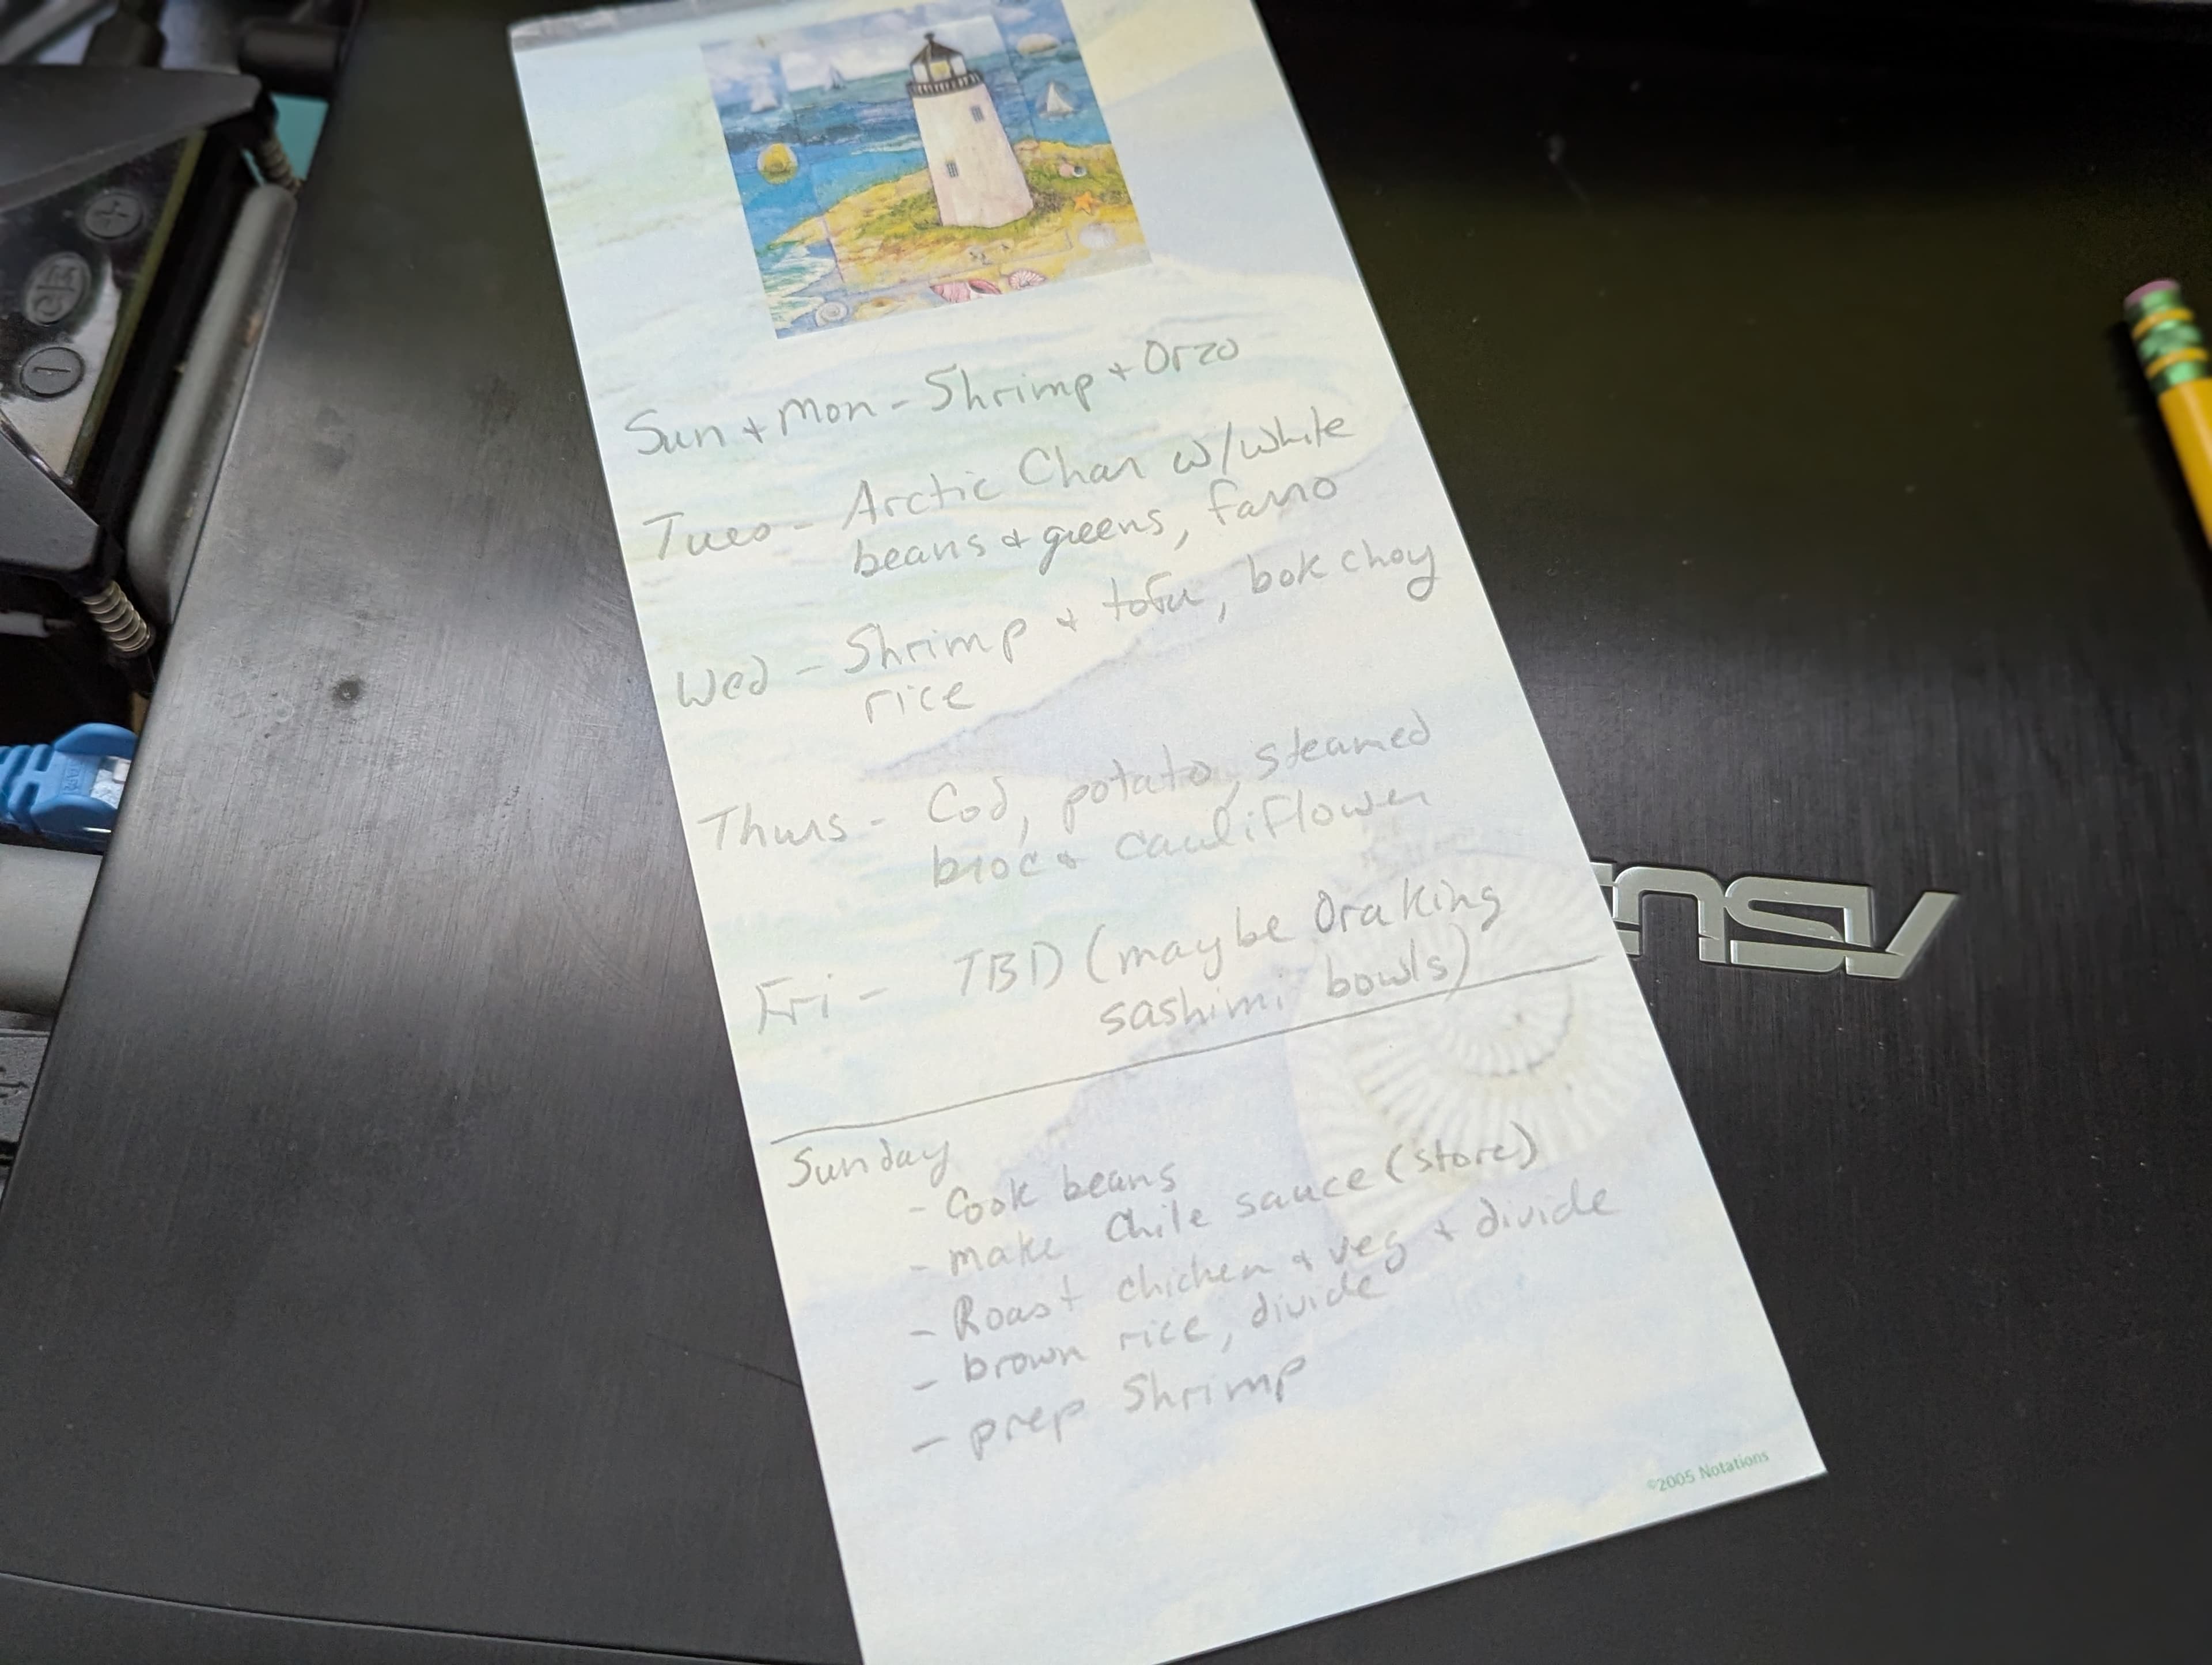 Sun + Mon - Shrimp + Orzo
Tues - Arctic Char w/white
beans + greens, farro
Wed - Shrimp + tofu, bok choy
rice
Thurs - Cod, potato, steamed
broc + cauliflower
Fri - TBD (maybe Ora King
sashimi bowls)
Sunday
- Cook beans
- make Chile sauce (store)
- Roast chicken + veg + divide
- brown rice, divide
- prep Shrimp
©2005 Notations